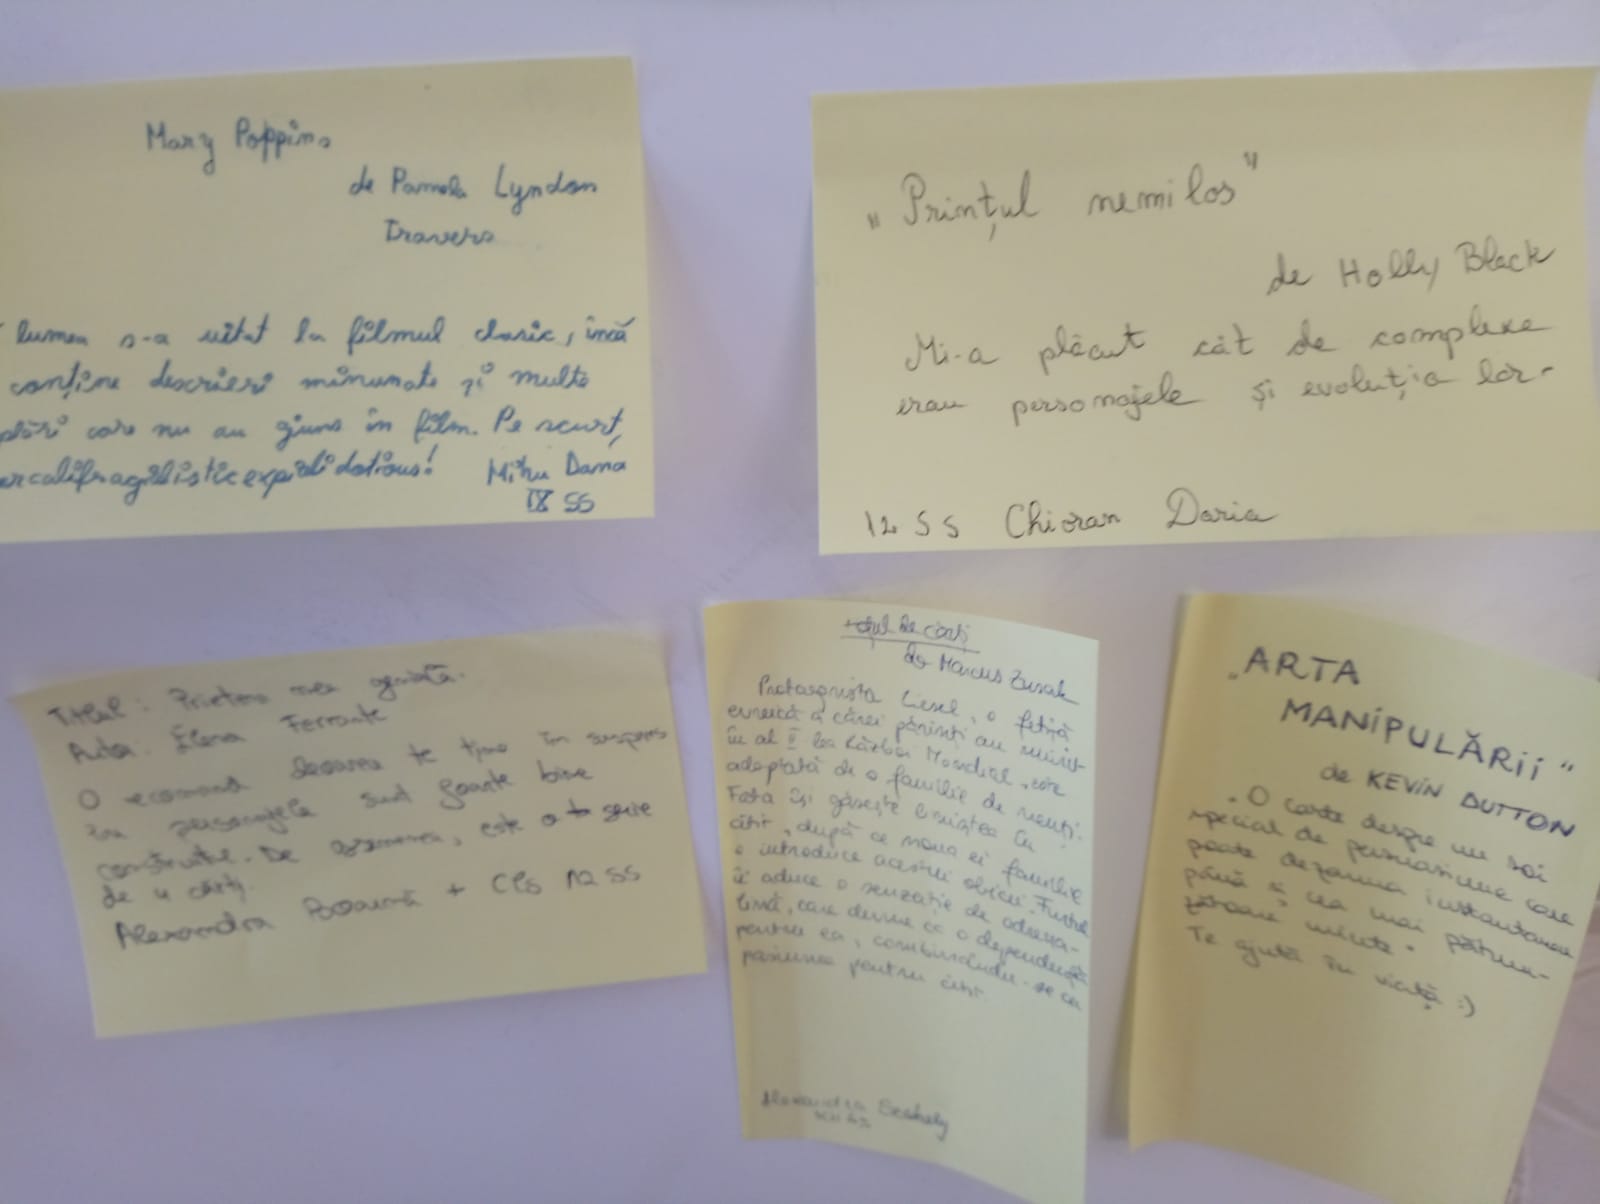 Mary Poppins
de Pamela Lyndon
Travers
lumea s-a uitat la filmul clasic, încă
conține descrieri minunate și multe
care nu au ajuns în film. Pe scurt,
ercalifragilisticexpialidocious!
Mihu Dama
IX SS
„Prințul nemilos”
de Holly Black
Mi-a plăcut cât de complexe
erau personajele și evoluția lor.
12 SS Chioran Daria
Titlul: Prietena mea genială.
Autor: Elena Ferrante
O recomand deoarece te ține în suspans
iar personajele sunt foarte bine
construite. De asemenea, este o serie
de 4 cărți.
Alexandra + Cls 12 SS
Hoțul de cărți
de Marcus Zusak
Protagonista Liesel, o fetiță
evreică a cărei părinți au murit
în al II lea Război Mondial, este
adoptată de o familie de nemți.
Fata își găsește liniștea în
citit, după ce noua ei familie
o introduce acestui obicei. Furtul
îi aduce o senzație de adrena-
lină, care devine ca o dependență
pentru ea, combinându-se cu
pasiunea pentru citit.
Alexandra Szekely
„ARTA
MANIPULĂRII“
de KEVIN DUTTON
O carte despre un soi
special de persuasiune care
poate dezarma instantaneu
până și cea mai pătrun-
zătoare minte.
Te ajută în viață :)